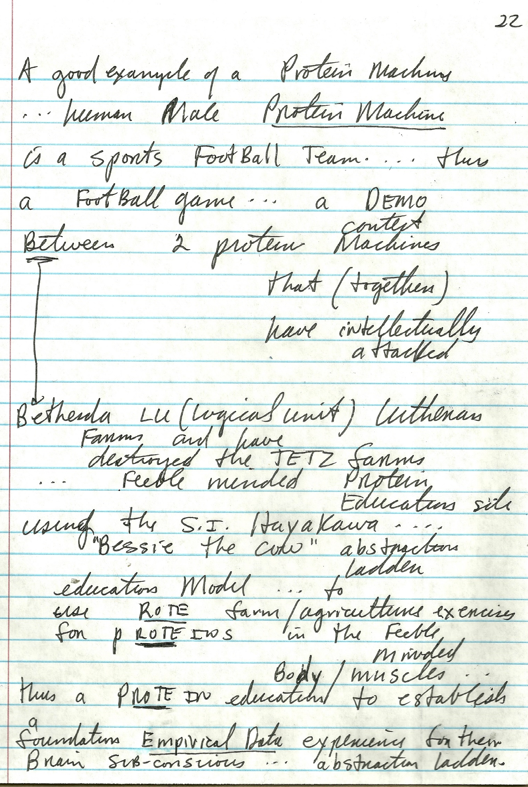 22
A good example of a Protein Machine
... human Male Protein Machine
is a sports FootBall Team.... thus
a FootBall game... a DEMO
contest
Between 2 protein Machines
that (together)
have intellectually
attacked
Bethesda LU (logical unit) Lutheran
Farms and have
destroyed the JETZ farms
... Feeble minded Protein
Education site
using the S.I. Hayakawa ....
"Bessie the cow" abstraction
ladder
education Model ... to
use ROTE farm/agriculture exercises
for pROTEINS in the Feeble
minded
Body/muscles ...
thus a PROTEIN education to establish
a
foundation Empirical Data experience for their
Brain sub-conscious ... abstraction ladder.